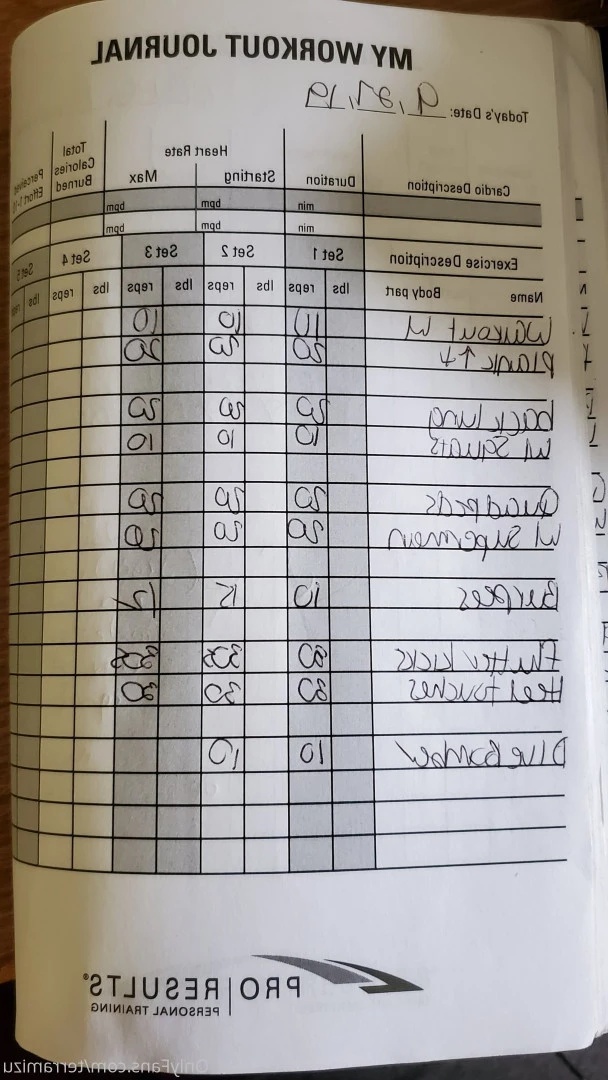 MY WORKOUT JOURNAL
Today's Date: 9, 27, 19
Cardio Description Duration Heart Rate Total Calories Burned Perceived Effort 1-10
Starting Max
min bpm bpm
min bpm bpm
Exercise Description Set 1 Set 2 Set 3 Set 4 Set 5
Name Body part lbs reps lbs reps lbs reps lbs reps lbs reps
Workout W 10 10
Plank ↑↓ 20 20 20
back lung 20 20 20
W Squats 10 10 10
Quadpeds 20 20 20
W Supermen 20 20 20
Burpees 10 12
Flutter kicks 30
Heel touches 30 30 30
Dive Bomber 10 10
PRO|RESULTS®
PERSONAL TRAINING
OnlyFans.com/terramizu